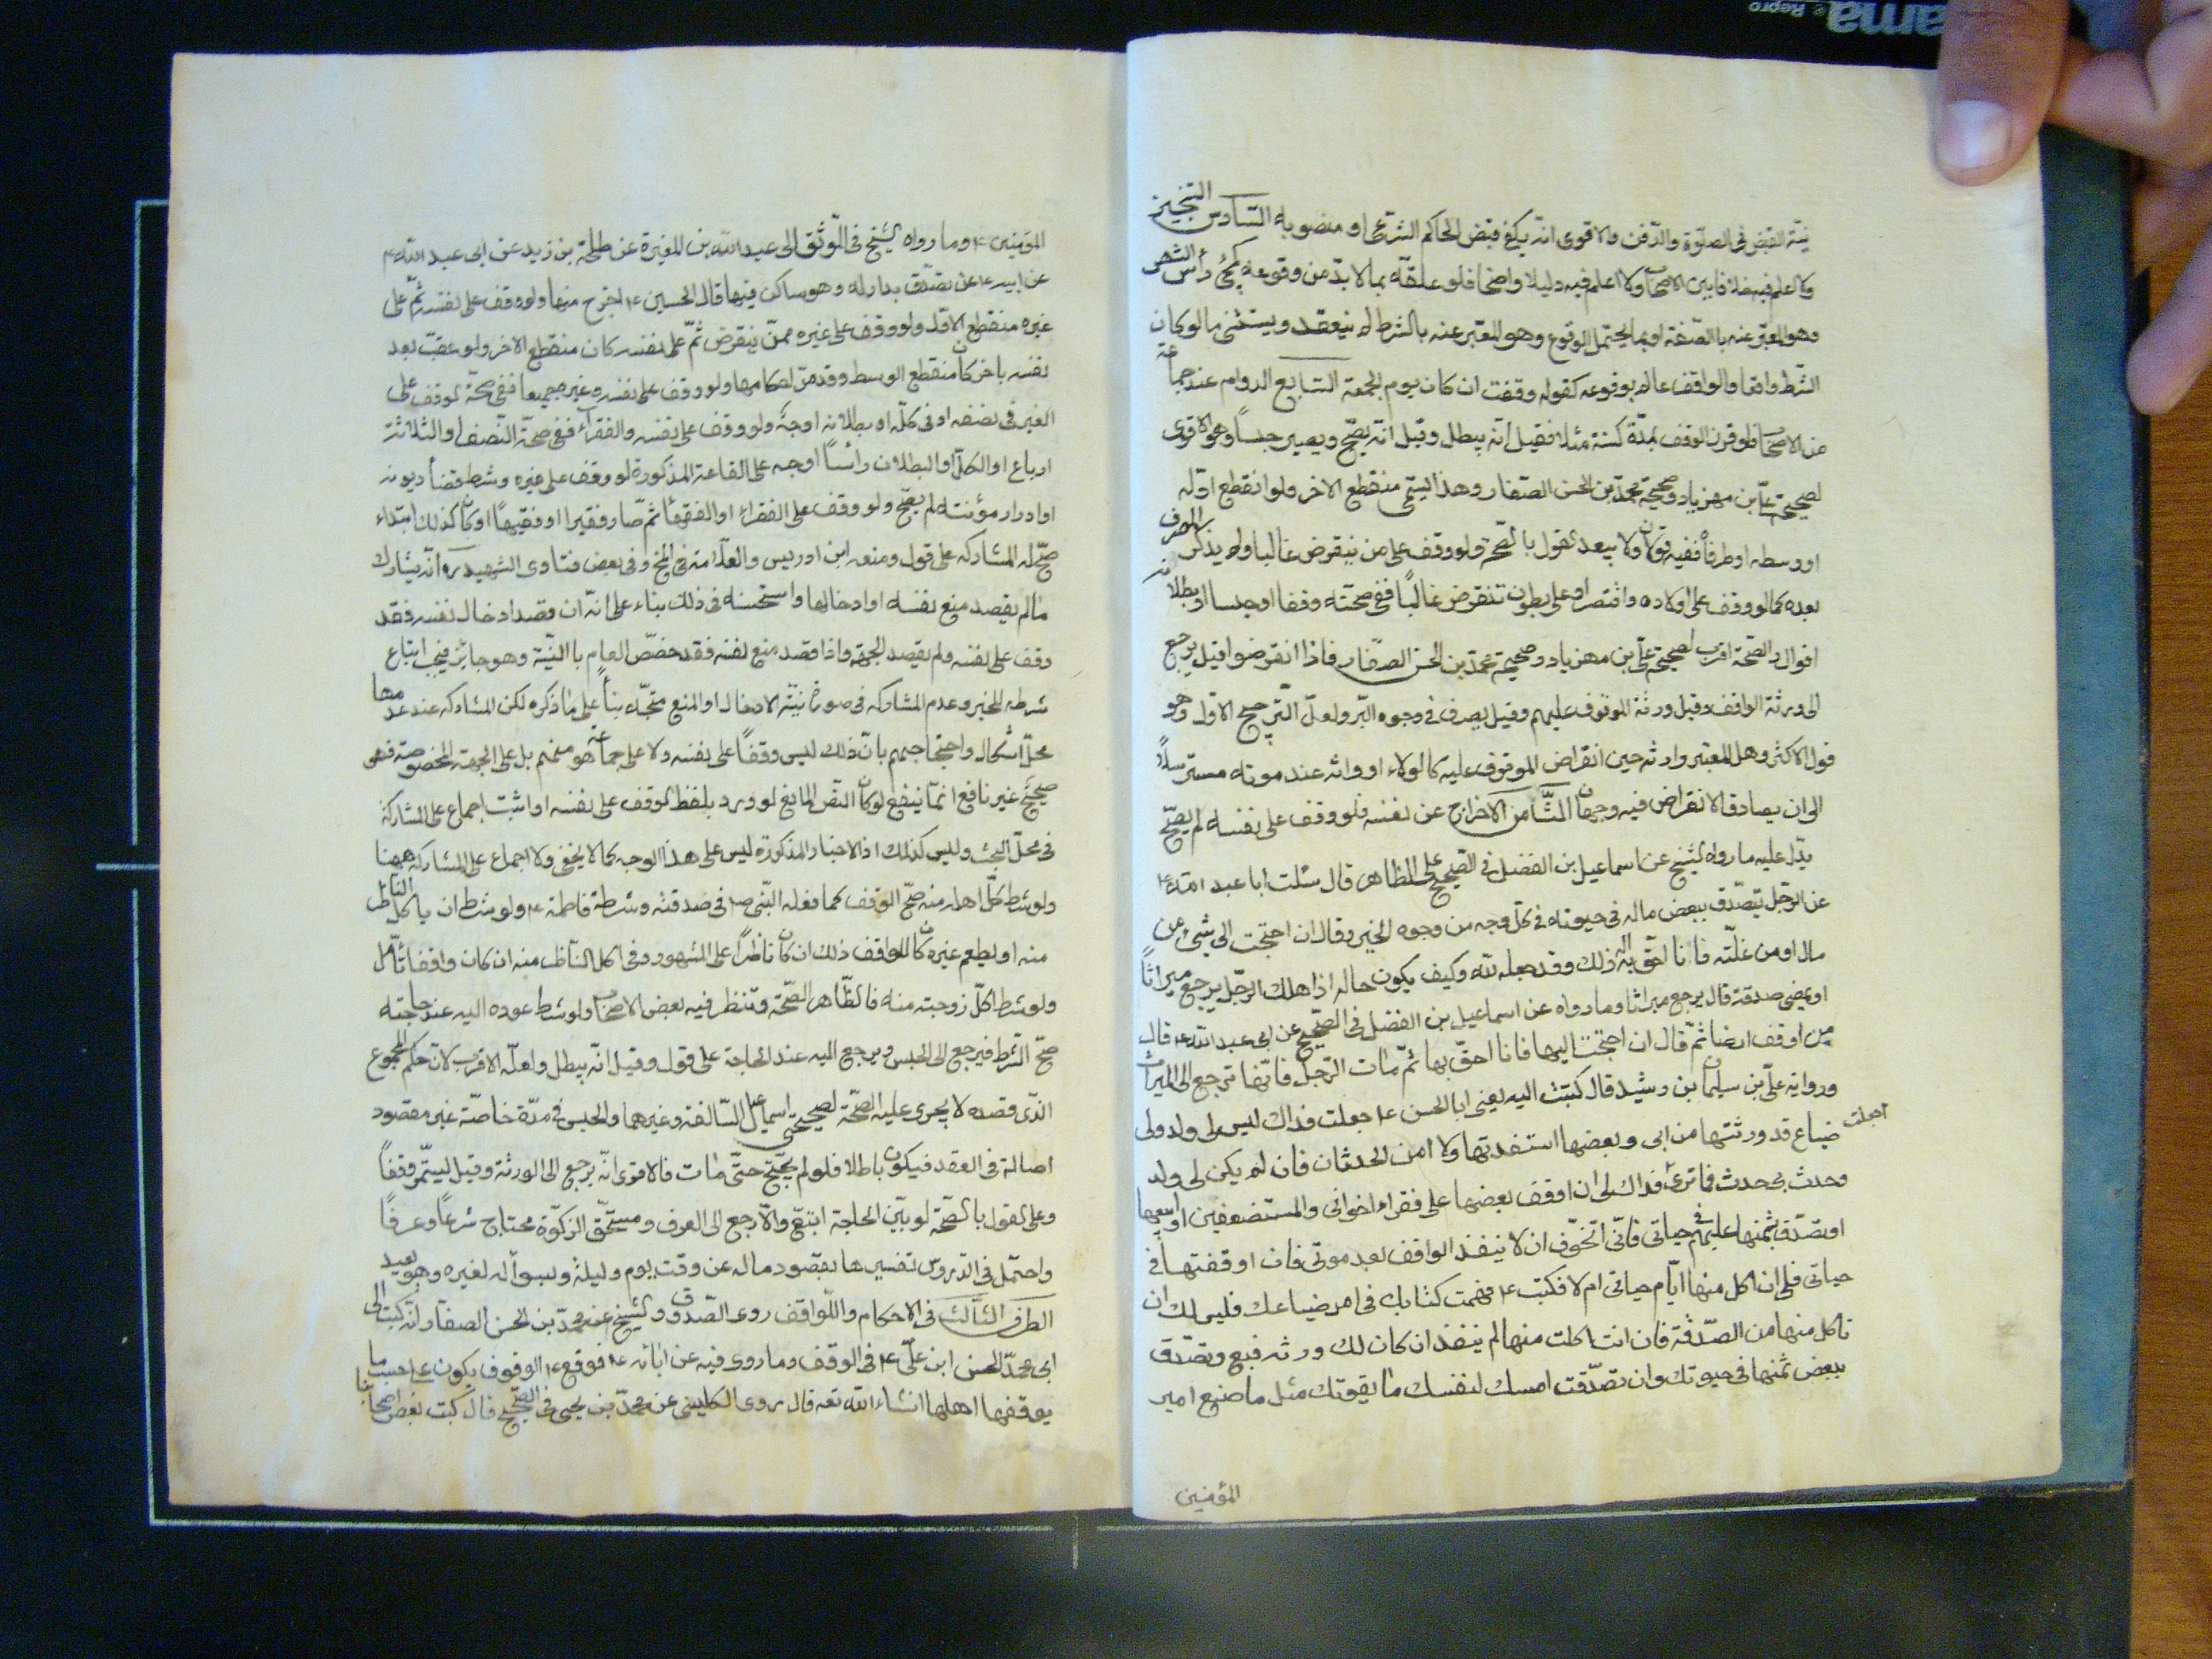 نية القبض فى الصلوة والدفن والاقوى انه يكفى قبض الحاكم الشرعى او منصوبه السادس التنجيز
ولا اعلم فيه خلافا بين الاصحاب ولا اعلم فيه دليلا واضحا فلو علقه بما لا بد من وقوعه كمجئ رأس الشهر
وهو المعبر عنه بالصفة او بما يحتمل الوقوع وهو المعبر عنه بالشرط لم ينعقد ويستثنى ما لو كان
الشرط واقعا والواقف عالم بوقوعه كقوله وقفت ان كان يوم الجمعة السابع الدوام عند جماعة
من الاصحاب فلو قرن الوقف بمدة كسنة مثلا فقيل انه يبطل وقيل انه يصح ويصير حبسا وهو الاقوى
لصحيحة على بن مهزيار وصحيحة محمد بن الحسن الصفار وهذا يسمى منقطع الاخر ولو انقطع اوله
او وسطه او طرفاه ففيه قولان ولا يبعد القول بالصحة ولو وقف على من ينقرض غالبا ولم يذكر المصرف
بعده كما لو وقف على اولاده واقتصر او على بطون تنقرض غالبا ففى صحته وقفا او حبسا او بطلانه
اقوال والصحة اقرب لصحيحة على بن مهزيار وصحيحة محمد بن الحسن الصفار فاذا انقرضوا قيل يرجع
الى ورثة الواقف وقيل ورثة الموقوف عليهم وقيل يصرف فى وجوه البر ولعل الترجيح الاول وهو
قول الاكثر وهل المعتبر وارثه حين انقراض الموقوف عليه كالولاء او وارثه عند موته مسترسلا
الى ان يصادف الانقراض فيه وجهان الثامن الاخراج عن نفسه فلو وقف على نفسه لم يصح
يدل عليه ما رواه الشيخ عن اسماعيل بن الفضل فى الصحيح على الظاهر قال سئلت ابا عبد الله ع
عن الرجل يتصدق ببعض ماله فى حيوته فى كل وجه من وجوه الخير وقال ان احتجت الى شئ من
مال او من غلته فانا احق به اله ذلك وقد جعله لله وكيف يكون حاله اذا هلك الرجل يرجع ميراثا
او يمضى صدقة قال يرجع ميراثا وما رواه عن اسماعيل بن الفضل فى الصحيح عن ابى عبد الله ع قال
من اوقف ارضا ثم قال ان احتجت اليها فانا احق بها ثم مات الرجل فانها ترجع الى الميراث
ورواية على بن سليمان بن رشيد قال كتبت اليه يعنى ابا الحسن ع جعلت فداك ليس لى ولد ولى
ضياع قد ورثتها من ابى وبعضها استفدتها ولا امن الحدثان فان لم يكن لى ولد
وحدث بى حدث فما ترى فداك لى ان اوقف بعضها على فقراء اخوانى والمستضعفين او ابيعها
او تصدق بثمنها عليهم فى حياتى فانى اتخوف ان لا ينفذ الواقف بعد موتى فان اوقفتها فى
حياتى فلى ان اكل منها ايام حياتى ام لا فكتبت ع فهمت كتابك فى امر ضياعك فليس لك ان
تاكل منها من الصدقة فان انت اكلت منها لم ينفذ ان كان لك ورثة فبع وتصدق
ببعض ثمنها فى حيوتك وان تصدقت امسك لنفسك ما يقوتك مثل ما صنع امير
المؤمنين
المؤمنين ع وما رواه الشيخ فى الموثق الى عبد الله بن المغيرة عن طلحة بن زيد عن ابى عبد الله ع
عن ابيه ع عن تصدق بدار له وهو ساكن فيها قال الحسين ع اخرج منها ولو وقف على نفسه ثم على
غيره منقطع الاول ولو وقف على غيره ممن ينقرض ثم على نفسه كان منقطع الاخر ولو عقب بعد
نفسه باخر كان منقطع الوسط وقد مر احكامها ولو وقف على نفسه وغيره جميعا ففى صحة الوقف على
الغير فى نصفه او فى كله او بطلانه اوجه ولو وقف على نفسه والفقراء ففى صحة النصف او الثلاثة
ارباع او الكل او البطلان رأسا اوجه على القاعة المذكورة لو وقف على غيره وشرط قضاء ديونه
او ادرار مؤنته لم يصح ولو وقف على الفقراء او الفقهاء ثم صار فقيرا او فقيها او كان كذلك ابتداء
صح له المشاركة على قول ومنعه ابن ادريس والعلامة فى المخ وفى بعض فتاوى الشهيد ره انه يشارك
ما لم يقصد منع نفسه او ادخالها واستحسنه فى ذلك بناء على انه ان قصد ادخال نفسه فقد
وقف على نفسه ولم يقصد الجهة واذا قصد منع نفسه فقد خصص العام باالنية وهو جائز فيجب اتباع
شرطه للخبر وعدم المشاركة فى صورة نية الادخال او المنع متجه بناء على ما ذكره لكن المشاركة عند عدمها
محل اشكال واحتجاجهم بان ذلك ليس وقفا على نفسه ولا على جماعة هو منهم بل على الجهة المخصوصة فهى
صحيح غير نافع انما ينفع لو كان النص المانع لو ورد بلفظ الوقف على نفسه او اثبت اجماع على المشاركة
فى محل البحث وليس كذلك اذ الاخبار المذكورة ليس على هذا الوجه كما لا يخفى ولا اجماع على المشاركة ههنا
ولو شرط اكل اهله منه صح الوقف كما فعله النبى ص فى صدقته وشرطه فاطمة ع ولو شرط ان ياكل الناظر
منه او يطعم غيره كان للواقف ذلك ان كان ناظرا على المشهور وفى اكل الناظر منه ان كان واقفا تأمل
ولو شرط اكل زوجته منه فالظاهر الصحة وتنظر فيه بعض الاصحاب ولو شرط عوده اليه عند حاجته
صح الشرط فيرجع الى الحبس ويرجع اليه عند الحاجة على قول وقيل انه يبطل ولعله الاقرب لان حكم المجموع
الذى قصده لا يجرى عليه الصحة لصحيحتى اسماعيل السالفة وغيرهما والحبس فى مدة خاصة غير مقصود
اصالة فى العقد فيكون باطلا فلو لم يحتج حتى مات فالاقوى انه يرجع الى الورثة وقيل ليستمر وقفا
وعلى القول بالصحة لو بين الحاجة اتبع والا رجع الى العرف ومستحق الزكوة محتاج شرعا وعرفا
واحتمل فى الدروس تفسيرها بقصود ماله عن وقت يوم وليلة وبسؤاله لغيره وهو بعيد
الطرف الثالث فى الاحكام واللواقف روى الصدوق والشيخ عن محمد بن الحسن الصفار انه كتب الى
ابى محمد الحسن ابن على ع فى الوقف وما روى فيه عن ابائه ع فوقع ع الوقوف يكون على حسب ما
يوقفها اهلها انشاء الله تعه قال روى الكلينى عن محمد بن يحيى فى الصحيح قال كتب بعض اصحابنا